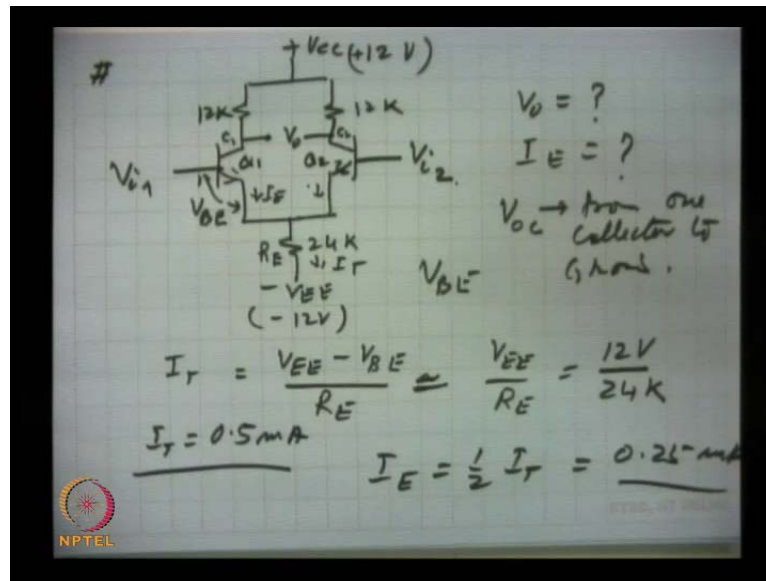 #
+Vcc (+12 V)
12K
12K
C1
V0
C2
Q1
Q2
Vi1
Vi2
VBE
↓IE
↓
RE 24K
↓IT
-VEE
(-12V)
V0 = ?
IE = ?
VOC → from one
collector to
Ground.
VBE
IT = (VEE - VBE) / RE ≃ VEE / RE = 12V / 24K
IT = 0.5mA
IE = 1/2 IT = 0.25 mA
NPTEL